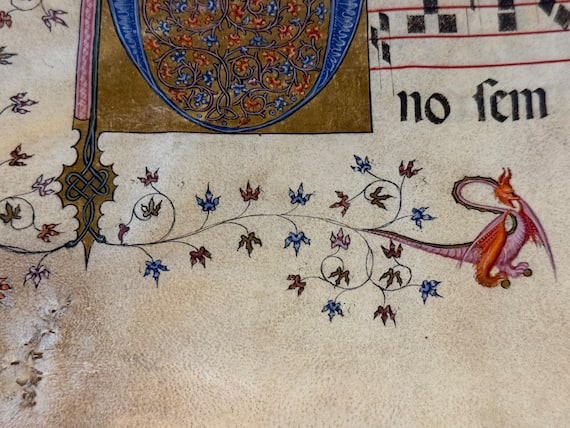 no sem